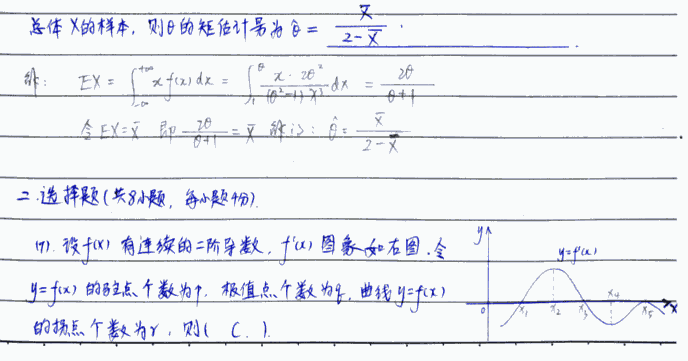 总体X的样本，则θ的矩估计量为 θ̂ = X̄/(2-X̄).
解: EX = ∫_{-∞}^{+∞} x f(x) dx = ∫_1^θ x·2θ²/((θ²-1)x³) dx = 2θ/(θ+1)
令 EX = X̄ 即 2θ/(θ+1) = X̄ 解得: θ̂ = X̄/(2-X̄)
二.选择题(共8小题，每小题4分).
(7). 设f(x) 有连续的二阶导数，f'(x) 图象如右图.令
y=f(x) 的驻点个数为p，极值点个数为q，曲线y=f(x)
的拐点个数为r，则( C. ).
y
y=f'(x)
0 x₁ x₂ x₃ x₄ x₅ x